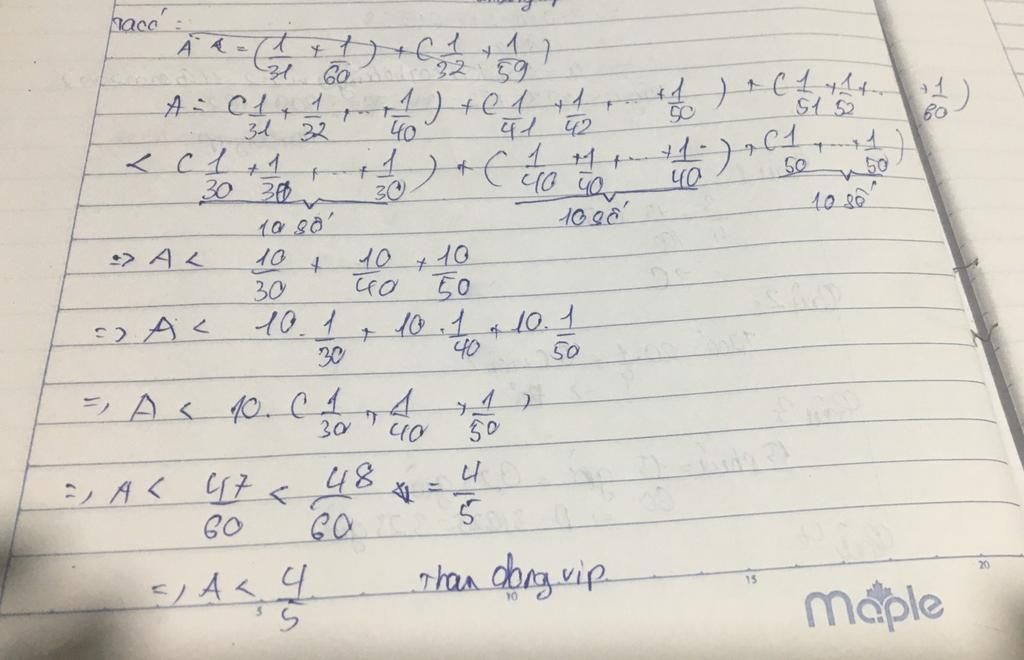 A = (1/31 + 1/60) + (1/32 + 1/59)
A = (1/31 + 1/32 + ... + 1/40) + (1/41 + 1/42 + ... + 1/50) + (1/51 + 1/52 + ... + 1/60)
< (1/30 + 1/30 + ... + 1/30) + (1/40 + 1/40 + ... + 1/40) + (1/50 + ... + 1/50)
10 số 10 số 10 số
=> A < 10/30 + 10/40 + 10/50
=> A < 10. 1/30 + 10. 1/40 + 10. 1/50
=> A < 10. (1/30 + 1/40 + 1/50)
=> A < 47/60 < 48/60 = 4/5
=> A < 4/5 Than dong vip
5 10 15 20
Maple